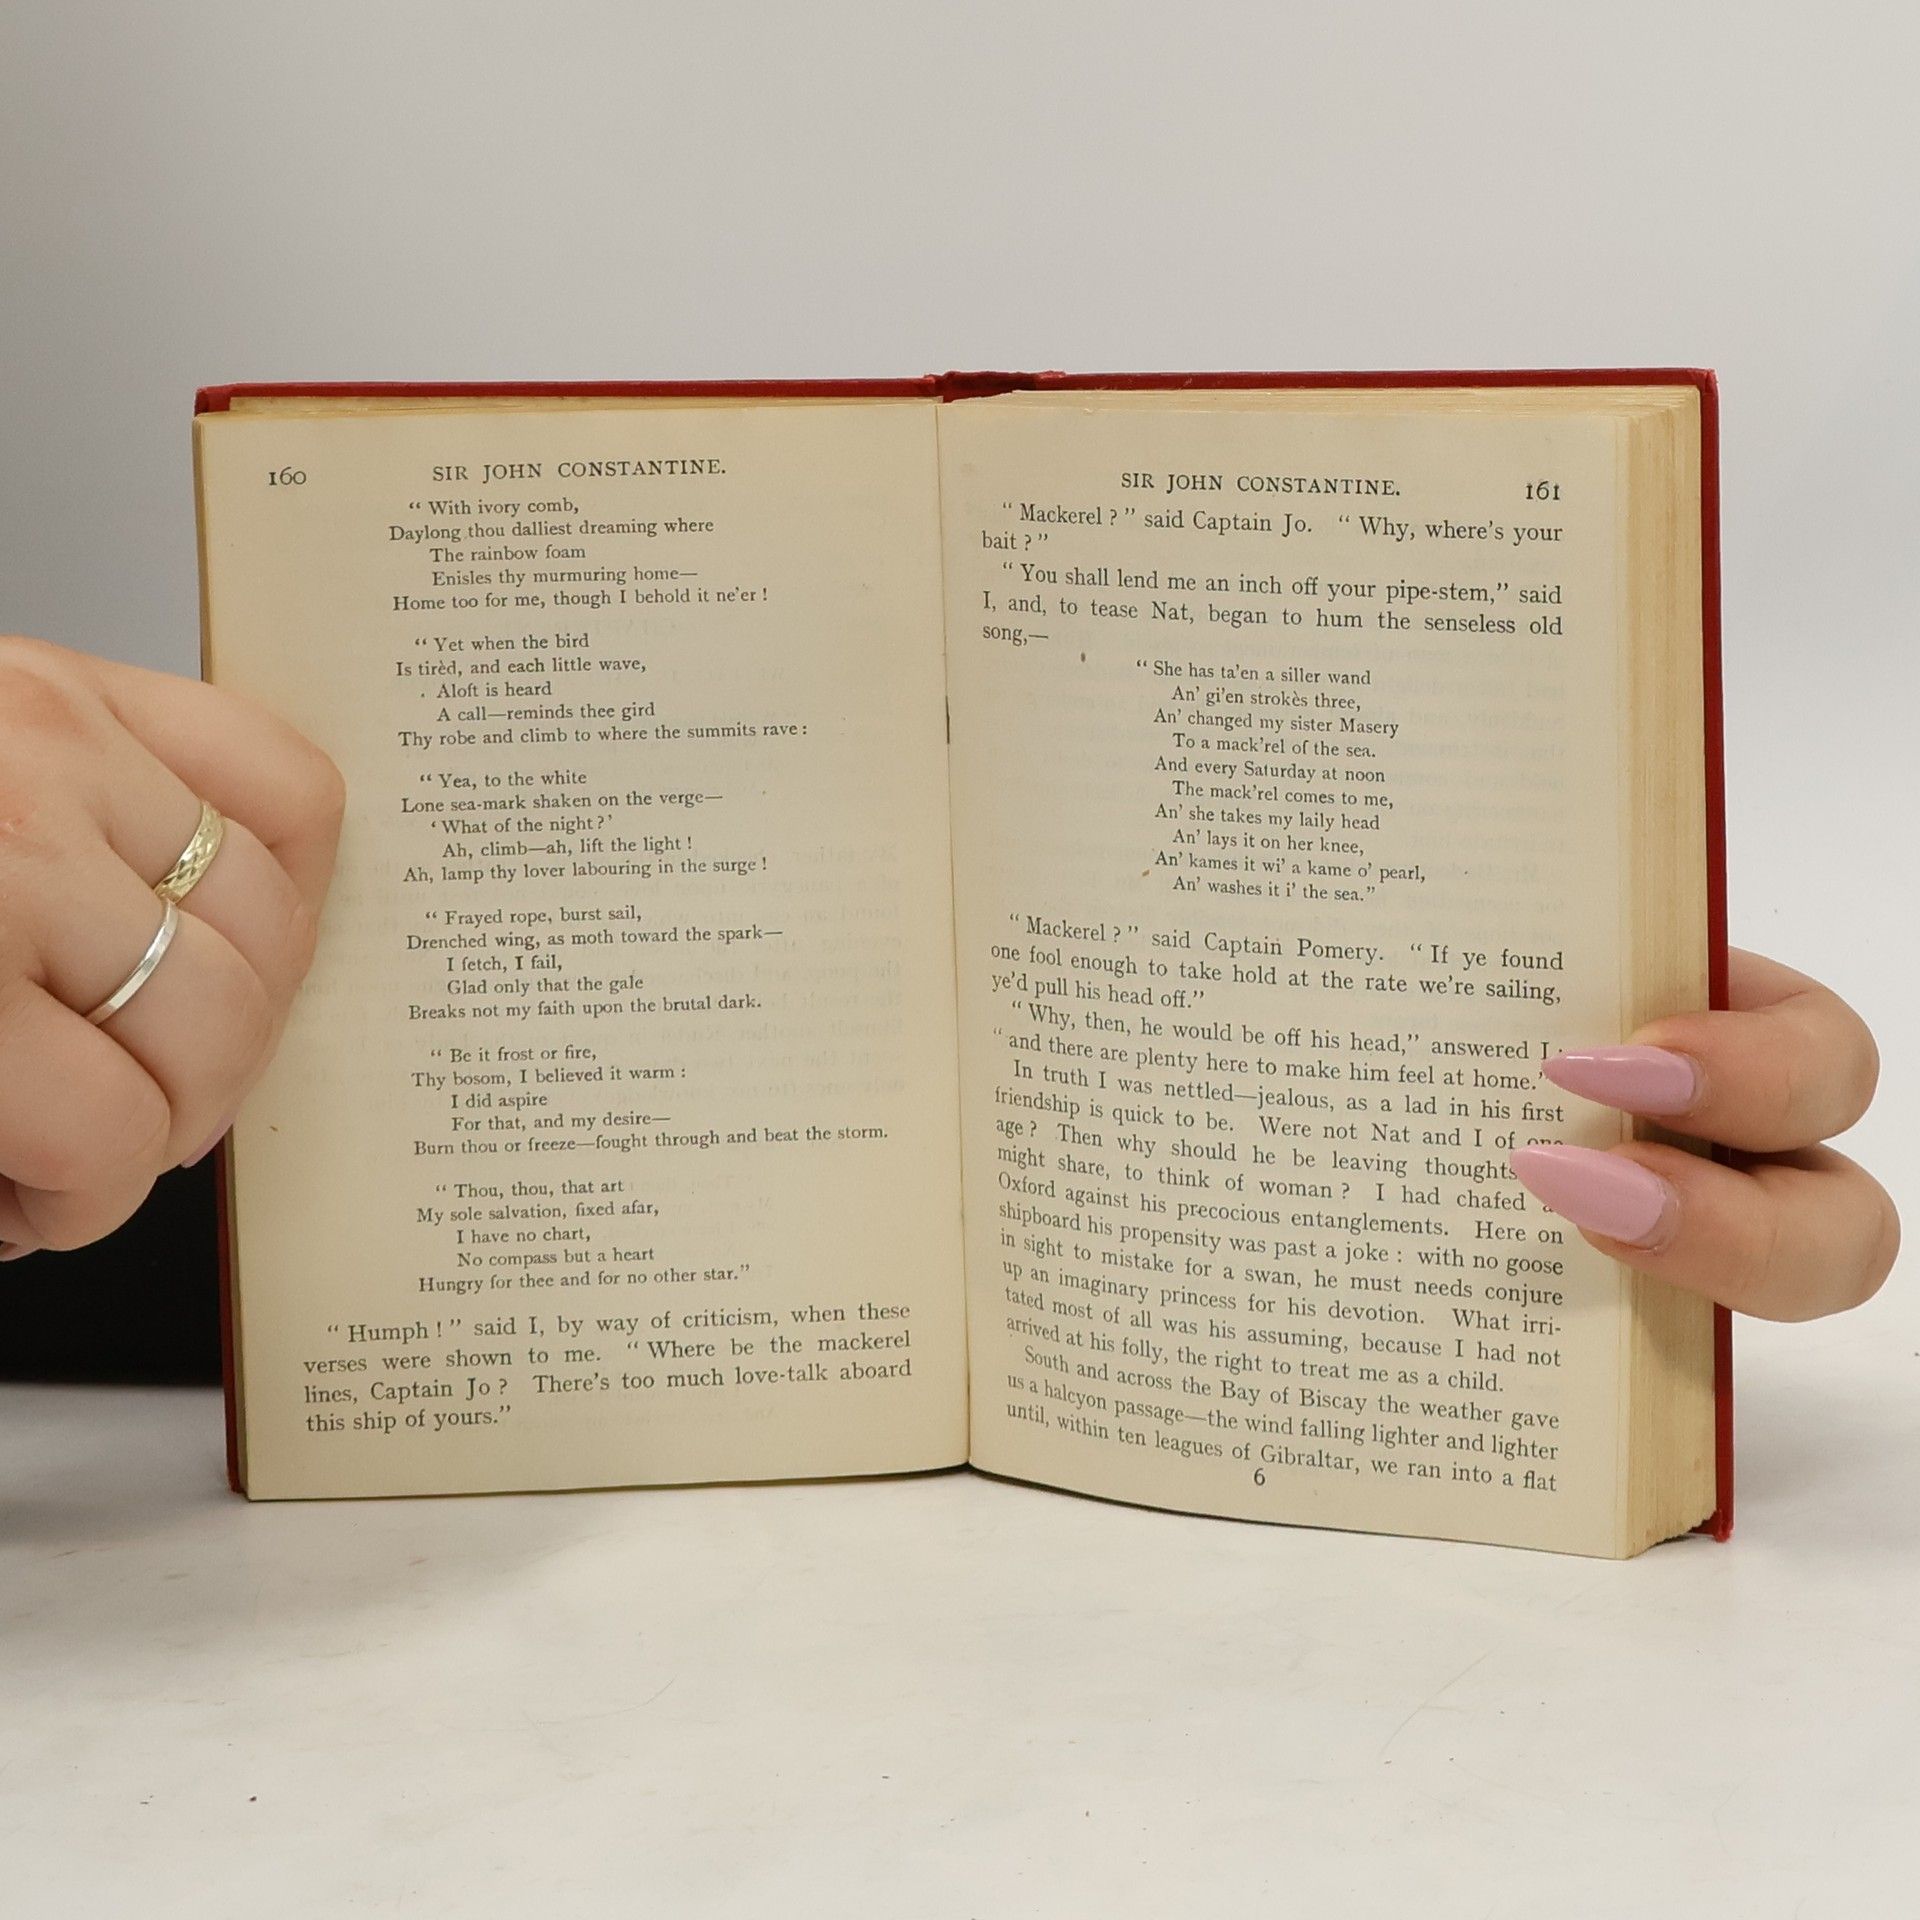 160
SIR JOHN CONSTANTINE.
“ With ivory comb,
Daylong thou dalliest dreaming where
The rainbow foam
Enisles thy murmuring home—
Home too for me, though I behold it ne'er !
“ Yet when the bird
Is tirèd, and each little wave,
Aloft is heard
A call—reminds thee gird
Thy robe and climb to where the summits rave :
“ Yea, to the white
Lone sea-mark shaken on the verge—
‘ What of the night ? ’
Ah, climb—ah, lift the light !
Ah, lamp thy lover labouring in the surge !
“ Frayed rope, burst sail,
Drenched wing, as moth toward the spark—
I fetch, I fail,
Glad only that the gale
Breaks not my faith upon the brutal dark.
“ Be it frost or fire,
Thy bosom, I believed it warm :
I did aspire
For that, and my desire—
Burn thou or freeze—fought through and beat the storm.
“ Thou, thou, that art
My sole salvation, fixed afar,
I have no chart,
No compass but a heart
Hungry for thee and for no other star.”
“ Humph ! ” said I, by way of criticism, when these
verses were shown to me. “ Where be the mackerel
lines, Captain Jo ? There's too much love-talk aboard
this ship of yours.”
SIR JOHN CONSTANTINE.
161
“ Mackerel ? ” said Captain Jo. “ Why, where's your
bait ? ”
“ You shall lend me an inch off your pipe-stem,” said
I, and, to tease Nat, began to hum the senseless old
song,—
“ She has ta'en a siller wand
An' gi'en strokès three,
An' changed my sister Masery
To a mack'rel of the sea.
And every Saturday at noon
The mack'rel comes to me,
An' she takes my laily head
An' lays it on her knee,
An' kames it wi' a kame o' pearl,
An' washes it i' the sea.”
“ Mackerel ? ” said Captain Pomery. “ If ye found
one fool enough to take hold at the rate we're sailing,
ye'd pull his head off.”
“ Why, then, he would be off his head,” answered I ;
“ and there are plenty here to make him feel at home.”
In truth I was nettled—jealous, as a lad in his first
friendship is quick to be. Were not Nat and I of one
age ? Then why should he be leaving thoughts
might share, to think of woman ? I had chafed
Oxford against his precocious entanglements. Here on
shipboard his propensity was past a joke : with no goose
in sight to mistake for a swan, he must needs conjure
up an imaginary princess for his devotion. What irri-
tated most of all was his assuming, because I had not
arrived at his folly, the right to treat me as a child.
South and across the Bay of Biscay the weather gave
us a halcyon passage—the wind falling lighter and lighter
until, within ten leagues of Gibraltar, we ran into a flat
6